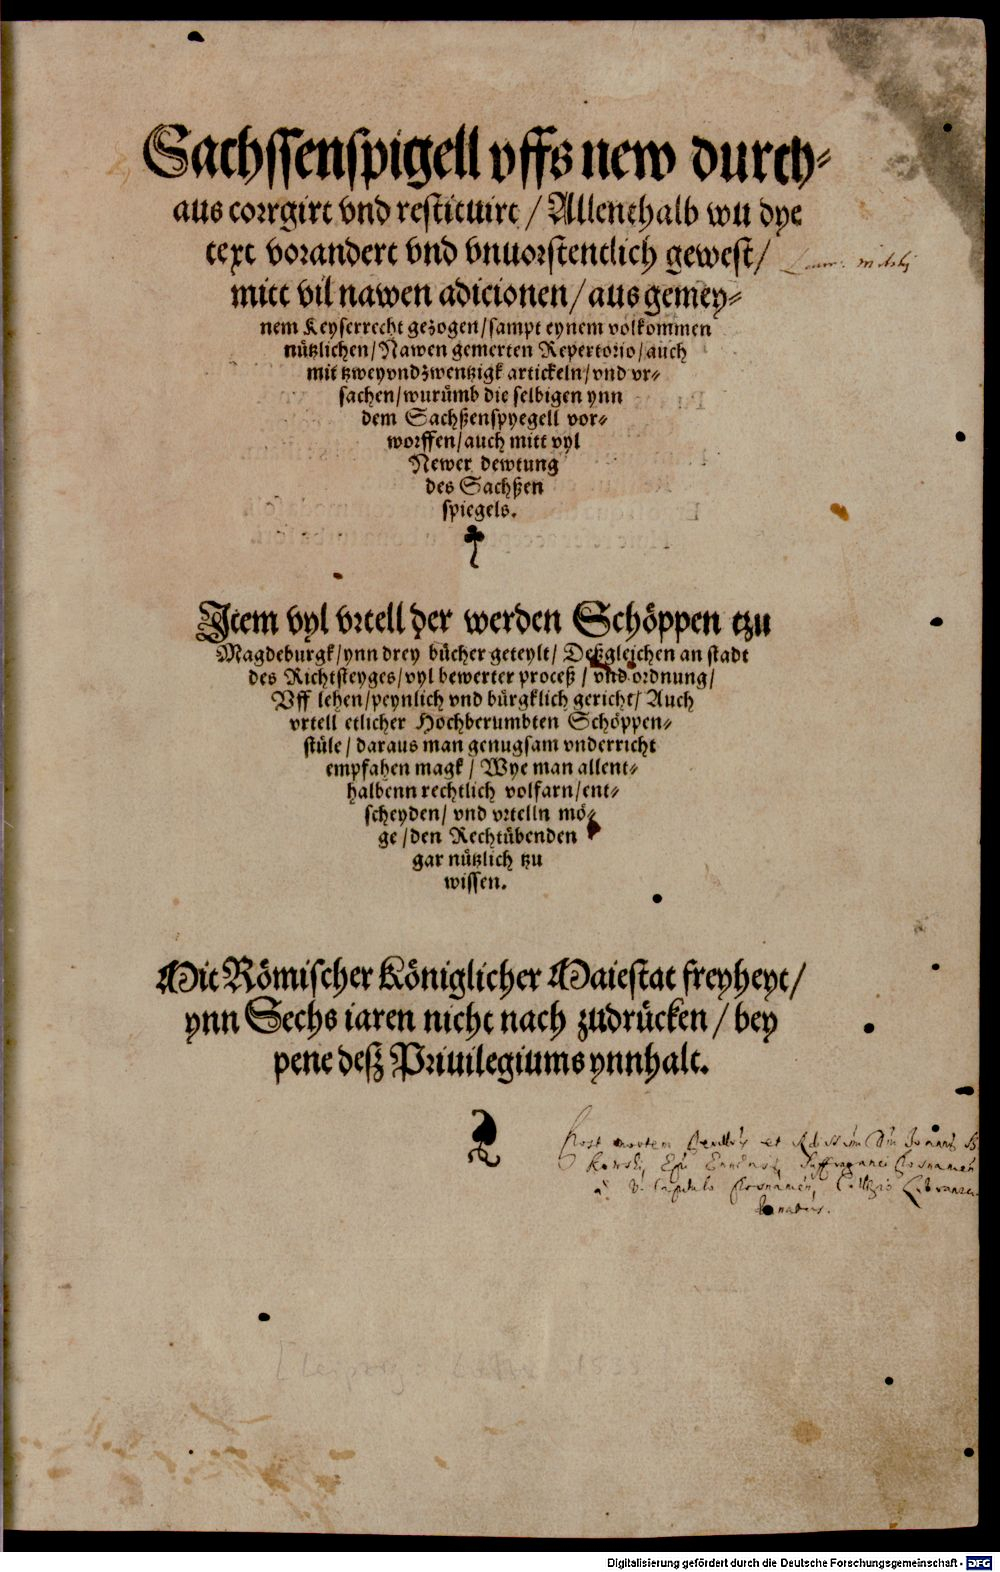 Sachssenspigell vffs new durch-
aus corrgirt vnd restituirt / Allenthalb wu dye
text vorandert vnd vnuorstentlich gewest /
mitt vil nawen adicionen / aus gemey-
nem Keyserrecht gezogen / sampt eynem volkommen
nützlichen / Nawen gemerten Repertorio / auch
mit tzweyvndzwentzigk artickeln / vnd vr-
sachen / wurümb die selbigen ynn
dem Sachßenspyegell vor-
worffen / auch mitt vyl
Newer dewtung
des Sachßen
spiegels.
Item vyl vrtell der werden Schöppen tzu
Magdeburgk / ynn drey bücher geteylt / Deßgleichen an stadt
des Richtsteyges / vyl bewerter proceß / vnd ordnung /
Vff lehen / peynlich vnd bürgklich gericht / Auch
vrtell etlicher Hochberumbten Schöppen-
stüle / daraus man genugsam vnderricht
empfahen magk / Wye man allent-
halbenn rechtlich volfarn / ent-
scheyden / vnd vrtelln mö-
ge / den Rechtübenden
gar nützlich tzu
wissen.
Mit Römischer Königlicher Maiestat freyheyt /
ynn Sechs iaren nicht nach zudrücken / bey
pene deß Priuilegiums ynnhalt.
Post mortem et
Suffraganei Posnanien
à V. Capitulo Posnanien
donatus.
[Leipzig: 1535]
Digitalisierung gefördert durch die Deutsche Forschungsgemeinschaft - DFG